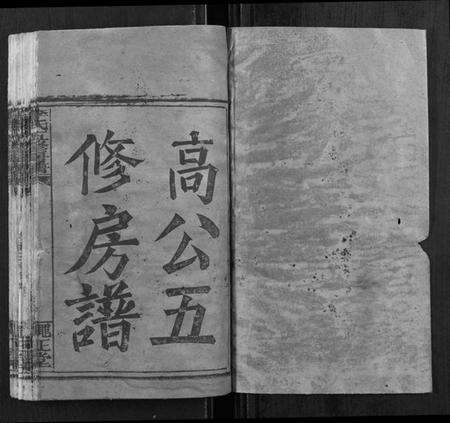 高公五
修房譜